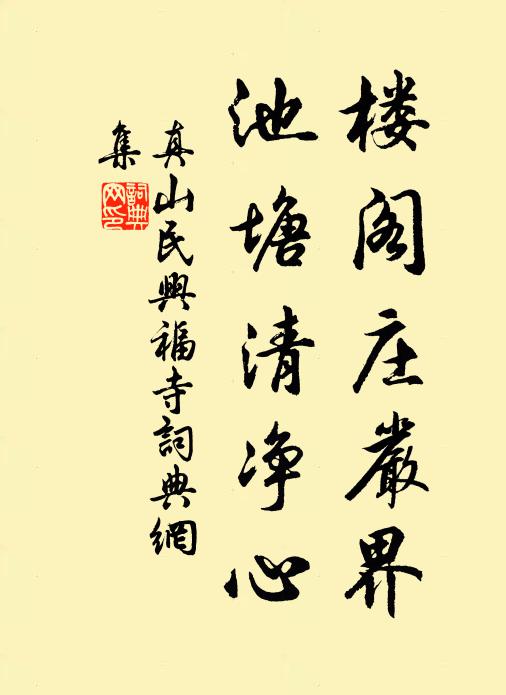 楼阁庄嚴界
池塘清净心
真山民興福寺詞典網
集
詞典
网印